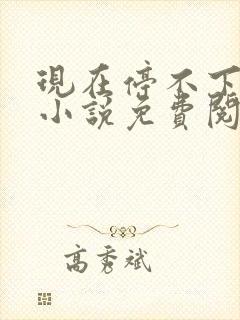 現在停不下
小說免費閱
高秀斌